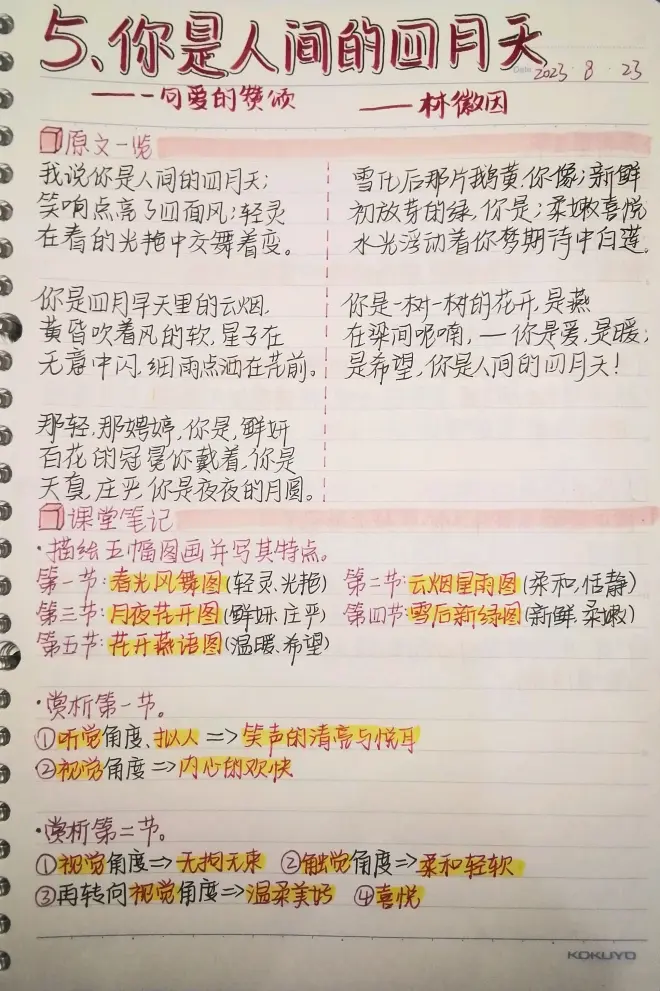 5、你是人间的四月天
Date 2023 8 23
———一句爱的赞颂 ——林徽因
原文一览
我说你是人间的四月天;
笑响点亮了四面风;轻灵
在春的光艳中交舞着变。
你是四月早天里的云烟,
黄昏吹着风的软,星子在
无意中闪,细雨点洒在花前。
那轻,那娉婷,你是,鲜妍
百花的冠冕你戴着,你是
天真,庄严,你是夜夜的月圆。
雪化后那片鹅黄,你像;新鲜
初放芽的绿,你是;柔嫩喜悦
水光浮动着你梦期待中白莲。
你是一树一树的花开,是燕
在梁间呢喃,—你是爱,是暖;
是希望,你是人间的四月天!
课堂笔记
·描绘五幅图画并写其特点。
第一节:春光风舞图(轻灵、光艳) 第二节:云烟星雨图(柔和,恬静)
第三节:月夜花开图(鲜妍、庄严) 第四节:雪后新绿图(新鲜,柔嫩)
第五节:花开燕语图(温暖、希望)
·赏析第一节。
①听觉角度、拟人 => 笑声的清亮与悦耳
②视觉角度 => 内心的欢快
·赏析第二节。
①视觉角度=>无拘无束 ②触觉角度=>柔和轻软
③再转向视觉角度=>温柔美好 ④喜悦
KOKUYO